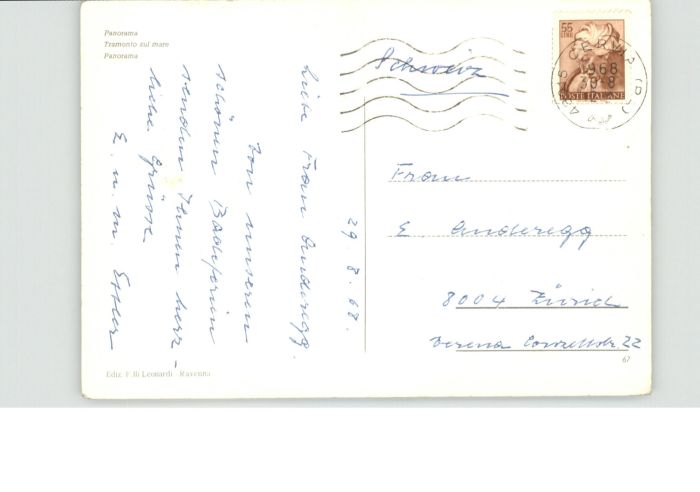 Panorama
Tramonto sul mare
Panorama
55
LIRE
POSTE ITALIANE
48015 CERVIA (RA)
1968
30 8
Schweiz
29. 8. 68.
Liebe Frau Anderegg.
Von unseren
schönen Badeferien
senden Ihnen herz-
liche Grüsse
E. u. M.
Frau
E. Anderegg
8004 Zürich
Verena 22
67
Ediz. F.lli Leonardi - Ravenna